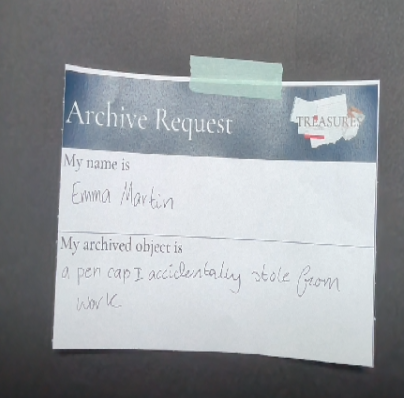 Archive Request
TREASURES
My name is
Emma Martin
My archived object is
a pen cap I accidentally stole from
work